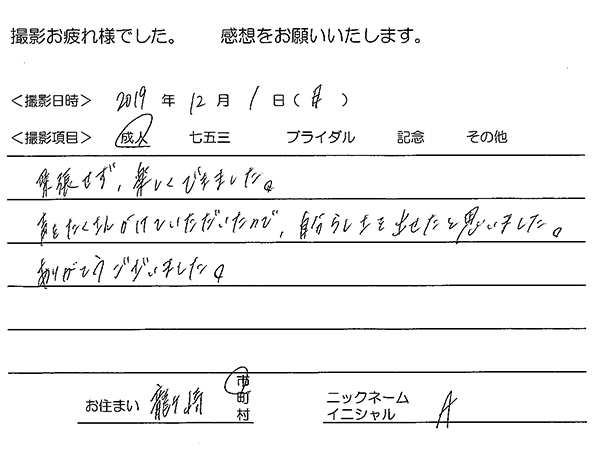 撮影お疲れ様でした。 感想をお願いいたします。
<撮影日時> 2019 年 12 月 1 日 ( 日 )
<撮影項目> 成人 七五三 ブライダル 記念 その他
緊張せず、楽しくできました。
声をたくさんかけていただいたので、自分らしさを出せたと思いました。
ありがとうございました。
お住まい 龍ケ崎 市 町 村 ニックネーム イニシャル A